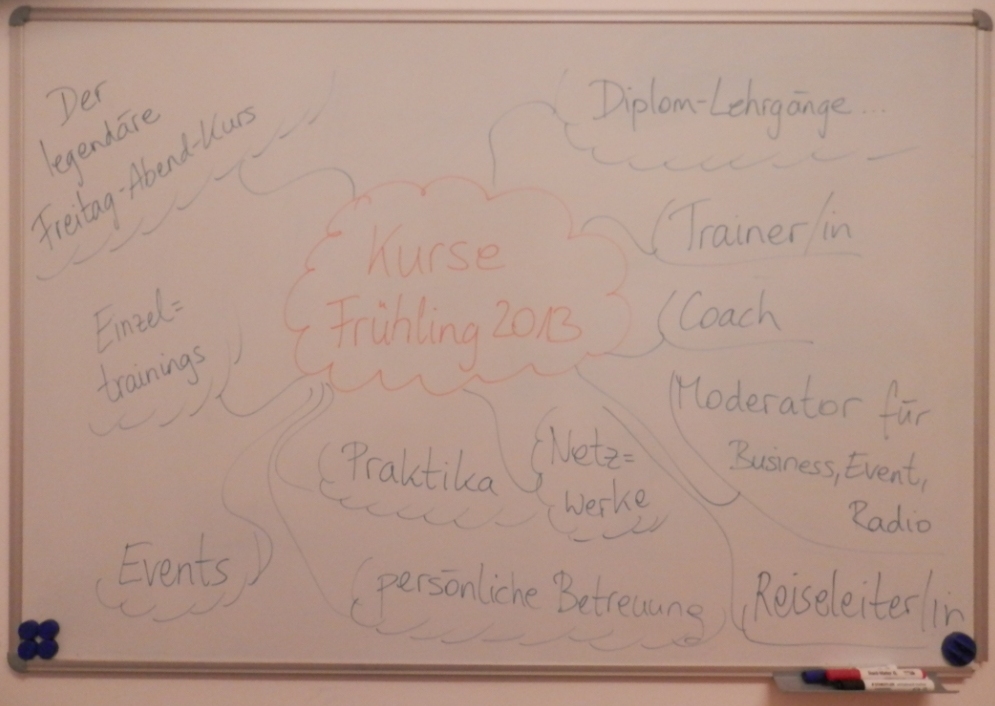 Der
legendäre
Freitag-Abend-Kurs
Diplom-Lehrgänge...
Kurse
Frühling 2013
Trainer/in
Coach
Einzel=
trainings
Moderator für
Business, Event,
Radio
Praktika
Netz=
werke
Events
persönliche Betreuung
Reiseleiter/in